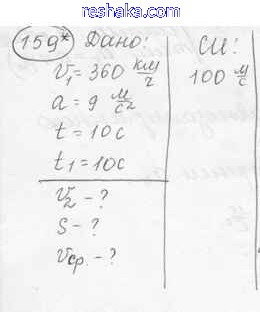 reshaka.com
159* Дано:
V₁ = 360 км/ч
a = 9 м/с²
t = 10с
t₁ = 10с
V₂ - ?
S - ?
Vср. - ?
СИ:
100 м/с